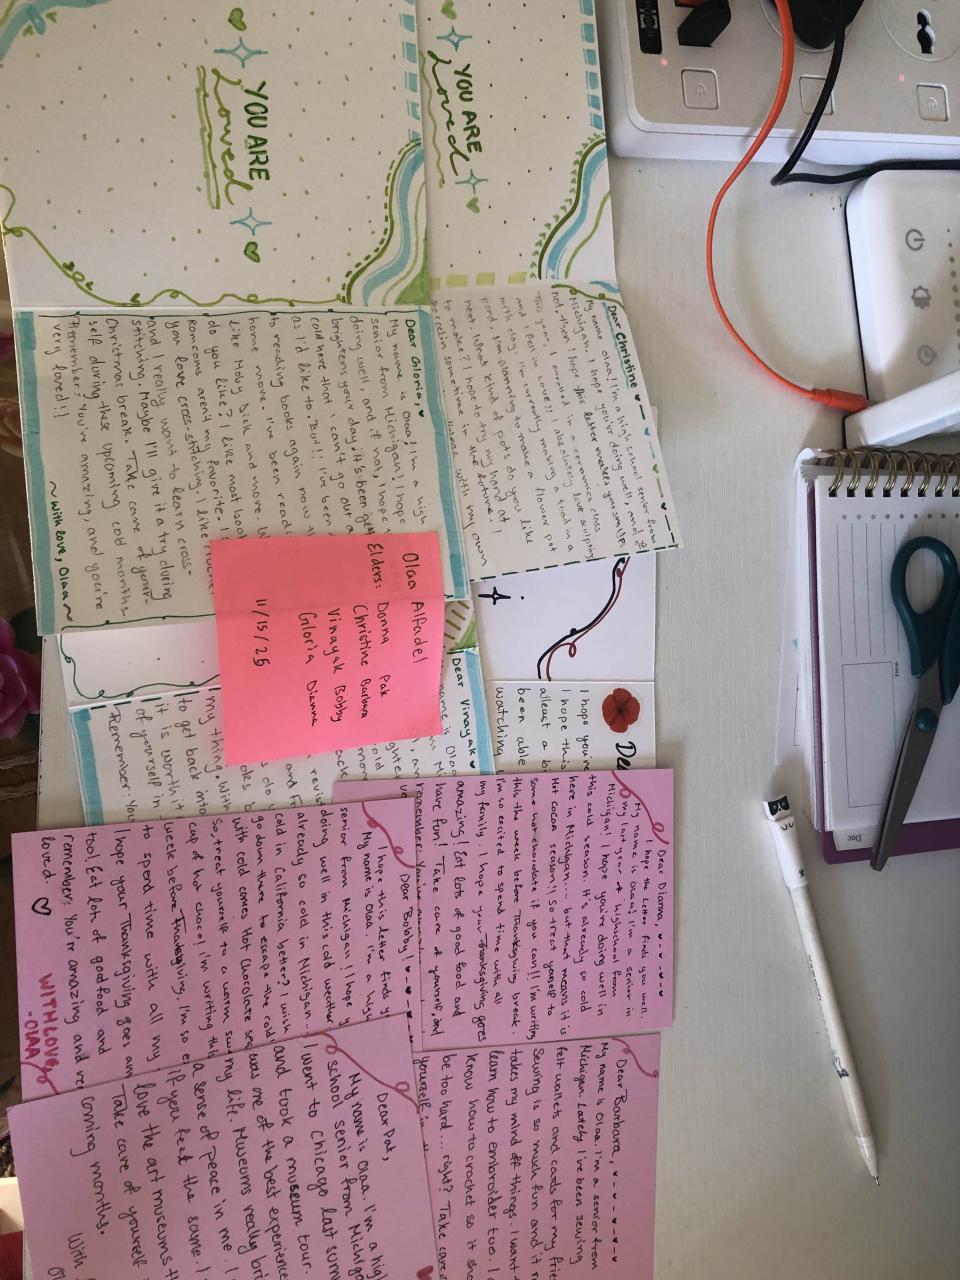 YOU ARE
Loved
YOU ARE
Loved
Dear Christine
My name Olaa! I'm a high school senior from
Michigan. I hope you're doing well, and if
not, then I hope this letter makes you smile.
This year, I enrolled in a ceramics class
and I fell in love!! I absolutely love sculpting
with clay. I'm currently making a toad in a
pond. I'm planning to make a flower pot
next. What kind of pots do you like
to make? I hope to try my hand at
sometime in the future!
with my own
Dear Gloria,
My name is Olaa, I'm a high
senior from Michigan! I hope
doing well, and if not, I hope
brightens your day. It's been get
cold here that I can't go out a
as I'd like to. But!! I've been
to reading books again now th
home more. I've been readi
like Moby Dick and more. W
do you like? I like most boo
Romcoms aren't my favorite.
you love cross-stitching. I like crochet
and I really want to learn cross-
stitching. Maybe I'll give it a try during
Christmas break. Take care of your-
self during these upcoming cold months.
Remember: You're amazing, and you're
very loved!!
~ with love, Olaa ~
Olaa Alfadel
Elders: Donna Pak
Christine Barbara
Vinayak Bobby
Gloria Dianna
11/15/25
Dear Vinayak
my thing. With
to get back into
it is worth it
of yourself in
Remember: You
De
I hope you're
I hope this
atleast a b
been able
watching
Dear Dianna,
I hope the letter finds you well.
My name is Olaa! I'm a senior in
my last year of highschool from
Michigan! I hope you're doing well in
this cold season. It's already so cold
here in Michigan... but that means it is
Hot cocoa season!! So treat yourself to
some hot chocolate if you can!!! I'm writing
this the week before Thanksgiving break.
I'm so excited to spend time with all
my family. I hope your Thanksgiving goes
amazing! Eat lots of good food and
have fun! Take care of yourself, and
remember: You're
Dear Bobby!
I hope this letter finds y
My name is Olaa. I'm a high
senior from Michigan! I hope y
doing well in this cold weather
already so cold in Michigan...
cold in California better? I wish
go down there to escape the cold
with cold comes Hot Chocolate sea
So, treat yourself to a warm
cup of hot choco! I'm writing this
week before Thanksgiving. I'm so e
to spend time with all my
I hope your Thanksgiving goes am
too! Eat lot of good food and
remember: You're amazing and ve
loved.
WITH LOVE,
-OLAA
Dear Barbara,
My name is Olaa. I'm a senior from
Michigan. Lately I've been sewing
felt wallets and cards for my frie
Sewing is so much fun and it r
takes my mind off things. I want
learn how to embroider too. I
know how to crochet so it sho
be too hard... right? Take care
yourself in
Dear Pak,
My name is Olaa. I'm a high
school senior from Michiga
I went to Chicago last summ
and took a museum tour.
was one of the best experience
my life. Museums really bri
a sense of peace in me. I
if you feel the same. I
love the art museums th
Take care of yourself
coming months.
With
Dec